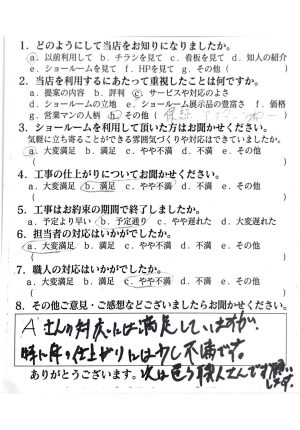 1. どのようにして当店をお知りになりましたか。
a. 以前利用して b. チラシを見て c. 看板を見て d. 知人の紹介
e. ショールームを見て f. HPを見て g. その他 ( )
2. 当店を利用するにあたって重視したことは何ですか。
a. 提案の内容 b. 評判 c. サービスや対応のよさ
d. ショールームの立地 e. ショールーム展示品の豊富さ f. 価格
g. 営業マンの人柄 h. その他 ( 保証 アフター )
3. ショールームを利用して頂いた方はお聞かせください。
気軽に立ち寄ることができる雰囲気づくりや対応はできていましたか。
a. 大変満足 b. 満足 c. やや不満 d. 不満 e. その他
( )
4. 工事の仕上がりについてお聞かせください。
a. 大変満足 b. 満足 c. やや不満 d. 不満 e. その他
( )
5. 工事はお約束の期間で終了しましたか。
a. 予定より早い b. 予定通り c. やや遅れた d. 大変遅れた
6. 担当者の対応はいかがでしたか。
a. 大変満足 b. 満足 c. やや不満 d. 不満 e. その他
( )
7. 職人の対応はいかがでしたか。
a. 大変満足 b. 満足 c. やや不満 d. 不満 e. その他
( )
8. その他ご意見・ご感想などございましたらお聞かせください。
A さんの対応には満足していますが、
の仕上がりには少し不満です。
ありがとうございます。 次は違う職人さんでお願い
します。